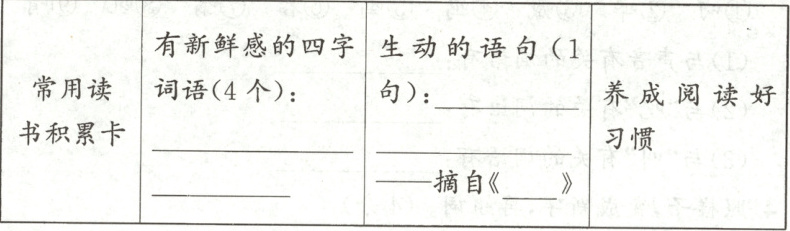 常用读
书积累卡
有新鲜感的四字
词语(4个):
生动的语句(1
句):
——摘自《 》
养成阅读好
习惯